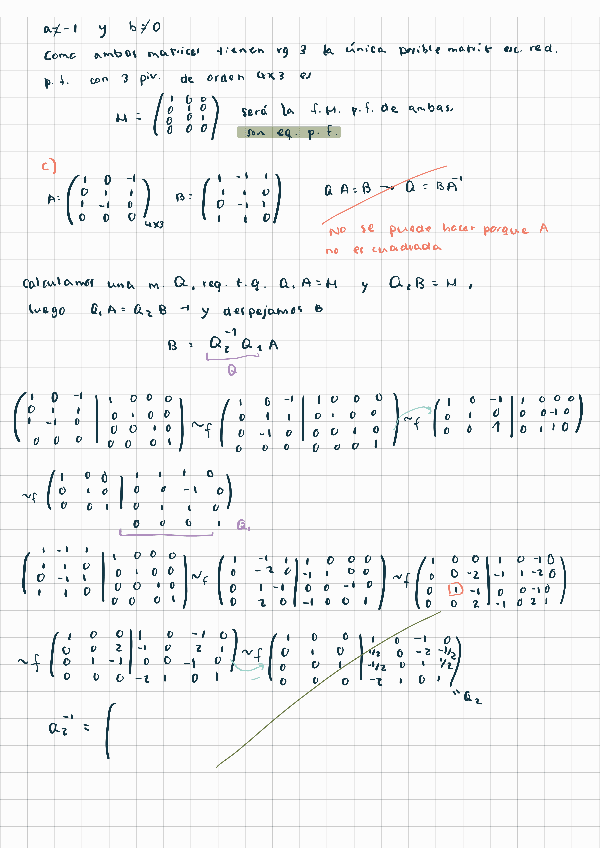 a≠-1 y b≠0
Como ambas matrices tienen rg 3 la única posible matriz esc. red.
p.f. con 3 piv. de orden 4x3 es
M = (1 0 0 / 0 1 0 / 0 0 1 / 0 0 0) será la f.H. p.f. de ambas
son eq. p.f.
c)
A = (1 0 -1 / 0 1 1 / 1 -1 0 / 0 0 0) 4x3 B = (1 -1 1 / 1 1 0 / 0 -1 1 / 1 1 0) Q A = B → Q = BA⁻¹
No se puede hacer porque A
no es cuadrada
Calculamos una m. Q, reg. t.q. Q₁ A = M y Q₂ B = M,
luego Q₁ A = Q₂ B → y despejamos B
B = Q₂⁻¹ Q₁ A
Q
(1 0 -1 / 0 1 1 / 1 -1 0 / 0 0 0 | 1 0 0 0 / 0 1 0 0 / 0 0 1 0 / 0 0 0 1) ~f (1 0 -1 / 0 1 1 / 0 -1 0 / 0 0 0 | 1 0 0 0 / 0 1 0 0 / 0 0 1 0 / 0 0 0 1) ~f (1 0 -1 / 0 1 0 / 0 0 1 | 1 0 0 0 / 0 0 -1 0 / 0 1 1 0)
~f (1 0 0 / 0 1 0 / 0 0 1 | 1 1 1 0 / 0 0 -1 0 / 0 1 1 0 / 0 0 0 1) Q₁
(1 -1 1 / 1 1 0 / 0 -1 1 / 1 1 0 | 1 0 0 0 / 0 1 0 0 / 0 0 1 0 / 0 0 0 1) ~f
~f (1 0 0 / 0 0 2 / 0 1 -1 / 0 0 0 | 1 0 -1 0 / -1 0 2 1 / 0 0 -1 0 / -2 1 0 1) ~f (1 0 0 / 0 1 0 / 0 0 1 / 0 0 0 | 1 0 -1 0 / 1/2 0 -2 -1/2 / -1/2 0 1 1/2 / -2 1 0 1) "Q₂
Q₂⁻¹ = (